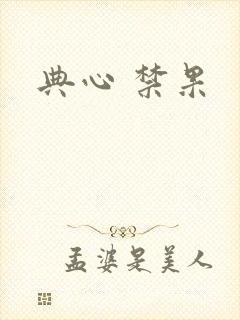 典心 禁果
孟婆是美人